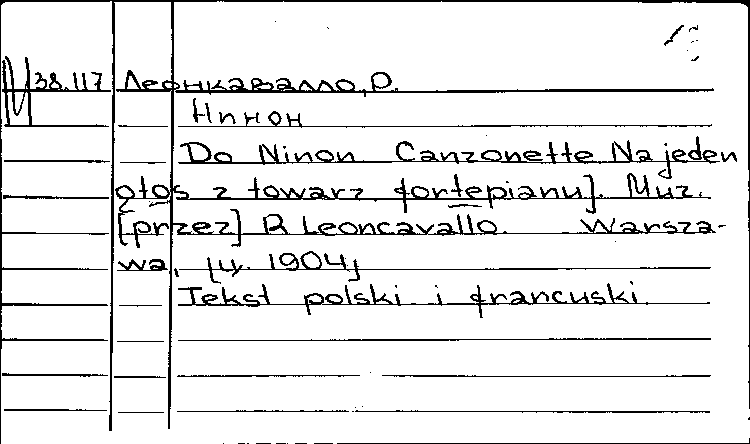 38.117 Леонкавалло, Р.
Нинон
Do Ninon Canzonette Na jeden
głos z towarz. fortepianu]. Muz.
[przez] R Leoncavallo. Warsza-
wa, [ц. 1904]
Tekst polski i francuski.